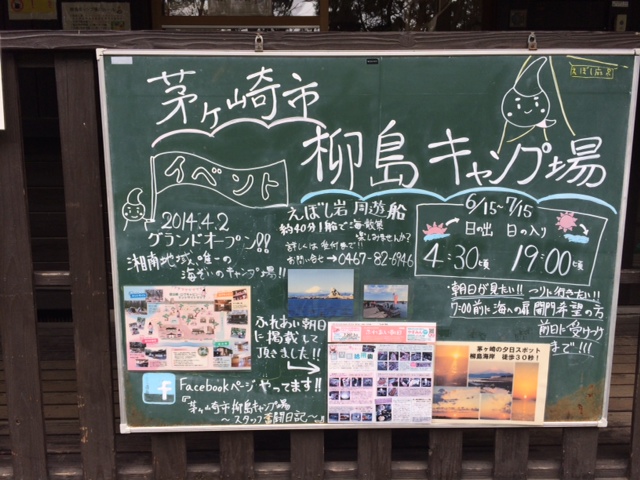 茅ヶ崎市
柳島キャンプ場
えぼし麻呂
イベント
2014.4.2
グランドオープン!!
湘南地域で唯一の
海ぞいのキャンプ場!!
えぼし岩周遊船
約40分1船で海の散策
楽しみませんか?
詳しくは受付まで!!
お問い合せ→0467-82-6946
6/15~7/15
日の出 日の入り
4:30頃 19:00頃
朝日が見たい!! つりに行きたい!!
7:00前に海への扉開門希望の方
前日に受つけ
まで!!!
ふれあい朝日
に掲載して
頂きました!!
茅ヶ崎の夕日スポット
柳島海岸 徒歩30秒!
Facebookページやってます!!
『茅ヶ崎市柳島キャンプ場
~スタッフ奮闘日記~